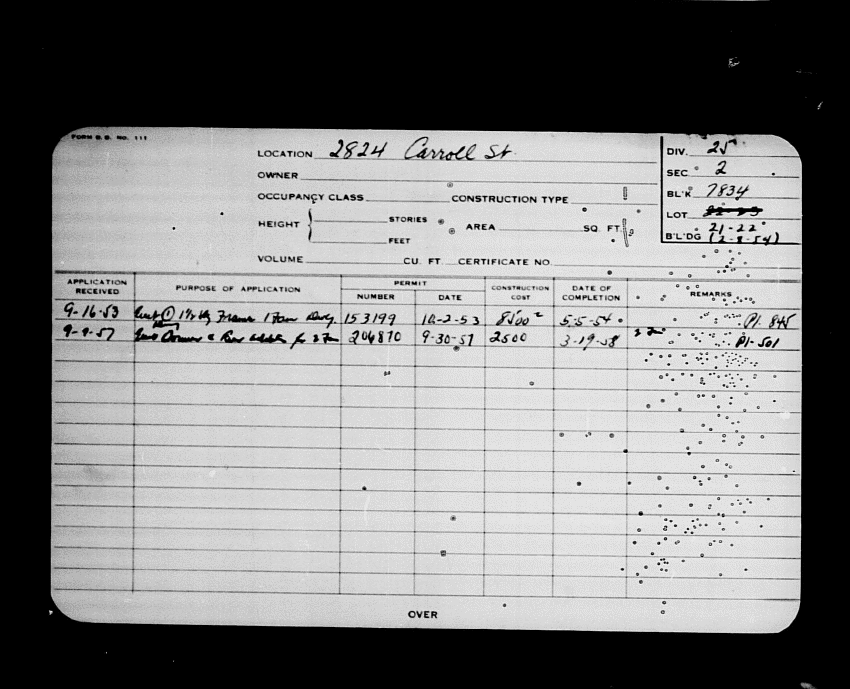 FORM D.B. NO. 111
LOCATION 2824 Carroll St.
OWNER
OCCUPANCY CLASS CONSTRUCTION TYPE
HEIGHT STORIES AREA SQ. FT.
FEET
VOLUME CU. FT. CERTIFICATE NO.
DIV. 25
SEC 2
BL'K 7834
LOT
21-22
B'L'DG (2-8-54)
APPLICATION RECEIVED PURPOSE OF APPLICATION PERMIT NUMBER DATE CONSTRUCTION COST DATE OF COMPLETION REMARKS
9-16-53 Erect (1) 1½ sty Frame 1 Fam Dwlg. 153199 10-2-53 8500 5-5-54 Pl. 845
9-9-57 Dormer & Rear for 2 Fam 206870 9-30-57 2500 3-19-58 2 Fam Pl-501
OVER